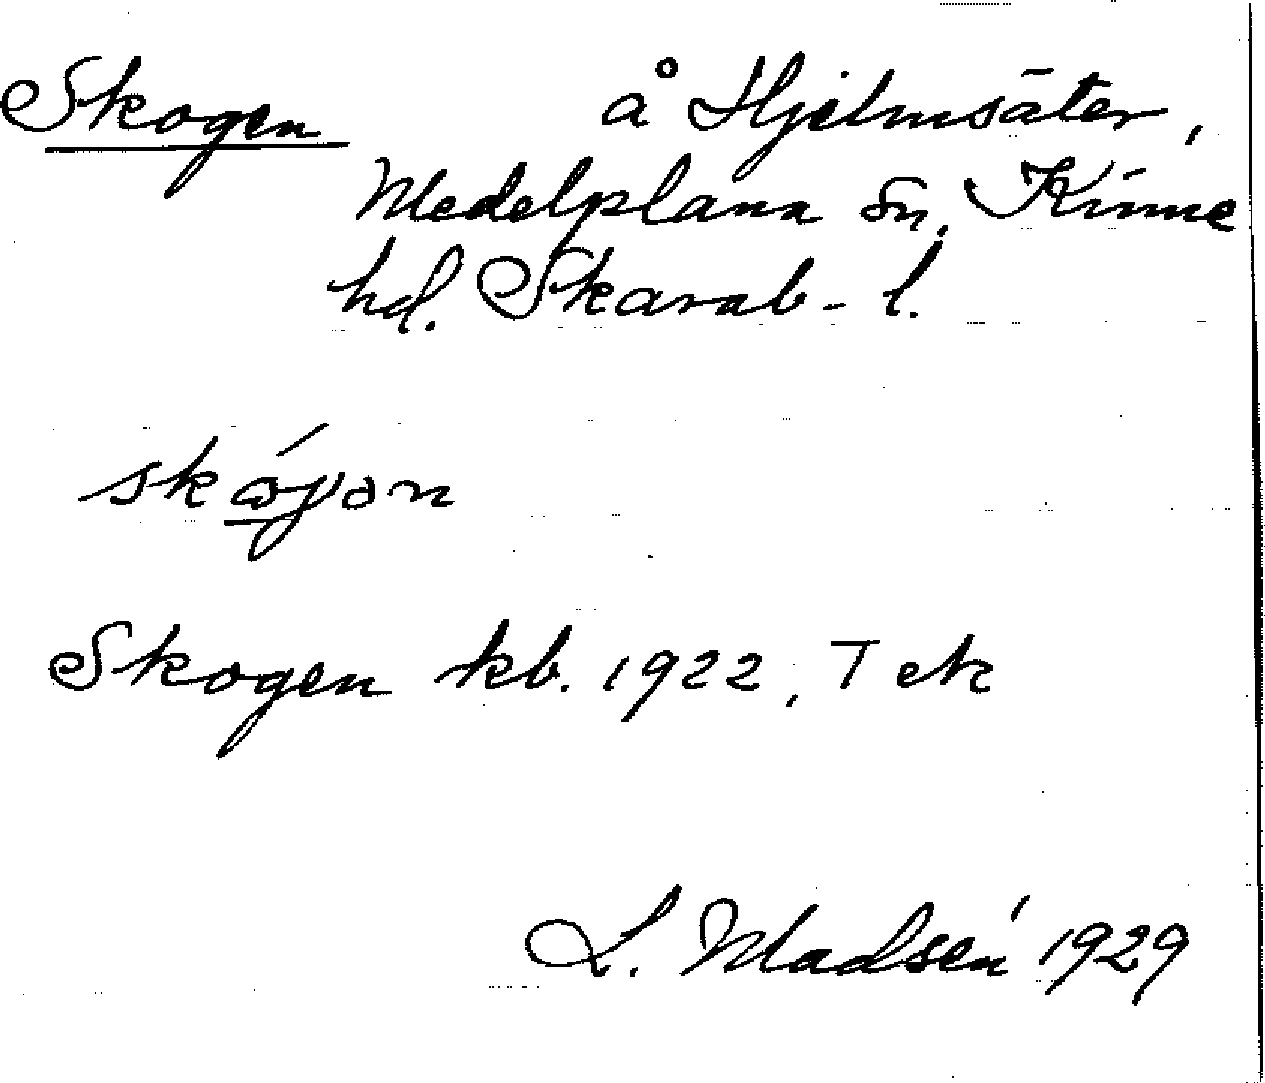 Skogen å Hjelmsäter,
Medelplana sn, Kinne
hd. Skarab- l.
Skogen kb. 1922, Tek
L. Madsén 1929